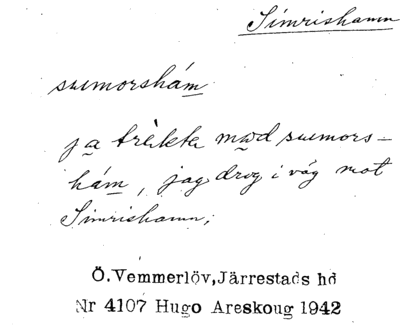 Simrishamn
sumorshám
ja träkta mod sumors-
hám, jag drog i väg mot
Simrishamn;
Ö.Vemmerlöv,Järrestads hd
Nr 4107 Hugo Areskoug 1942